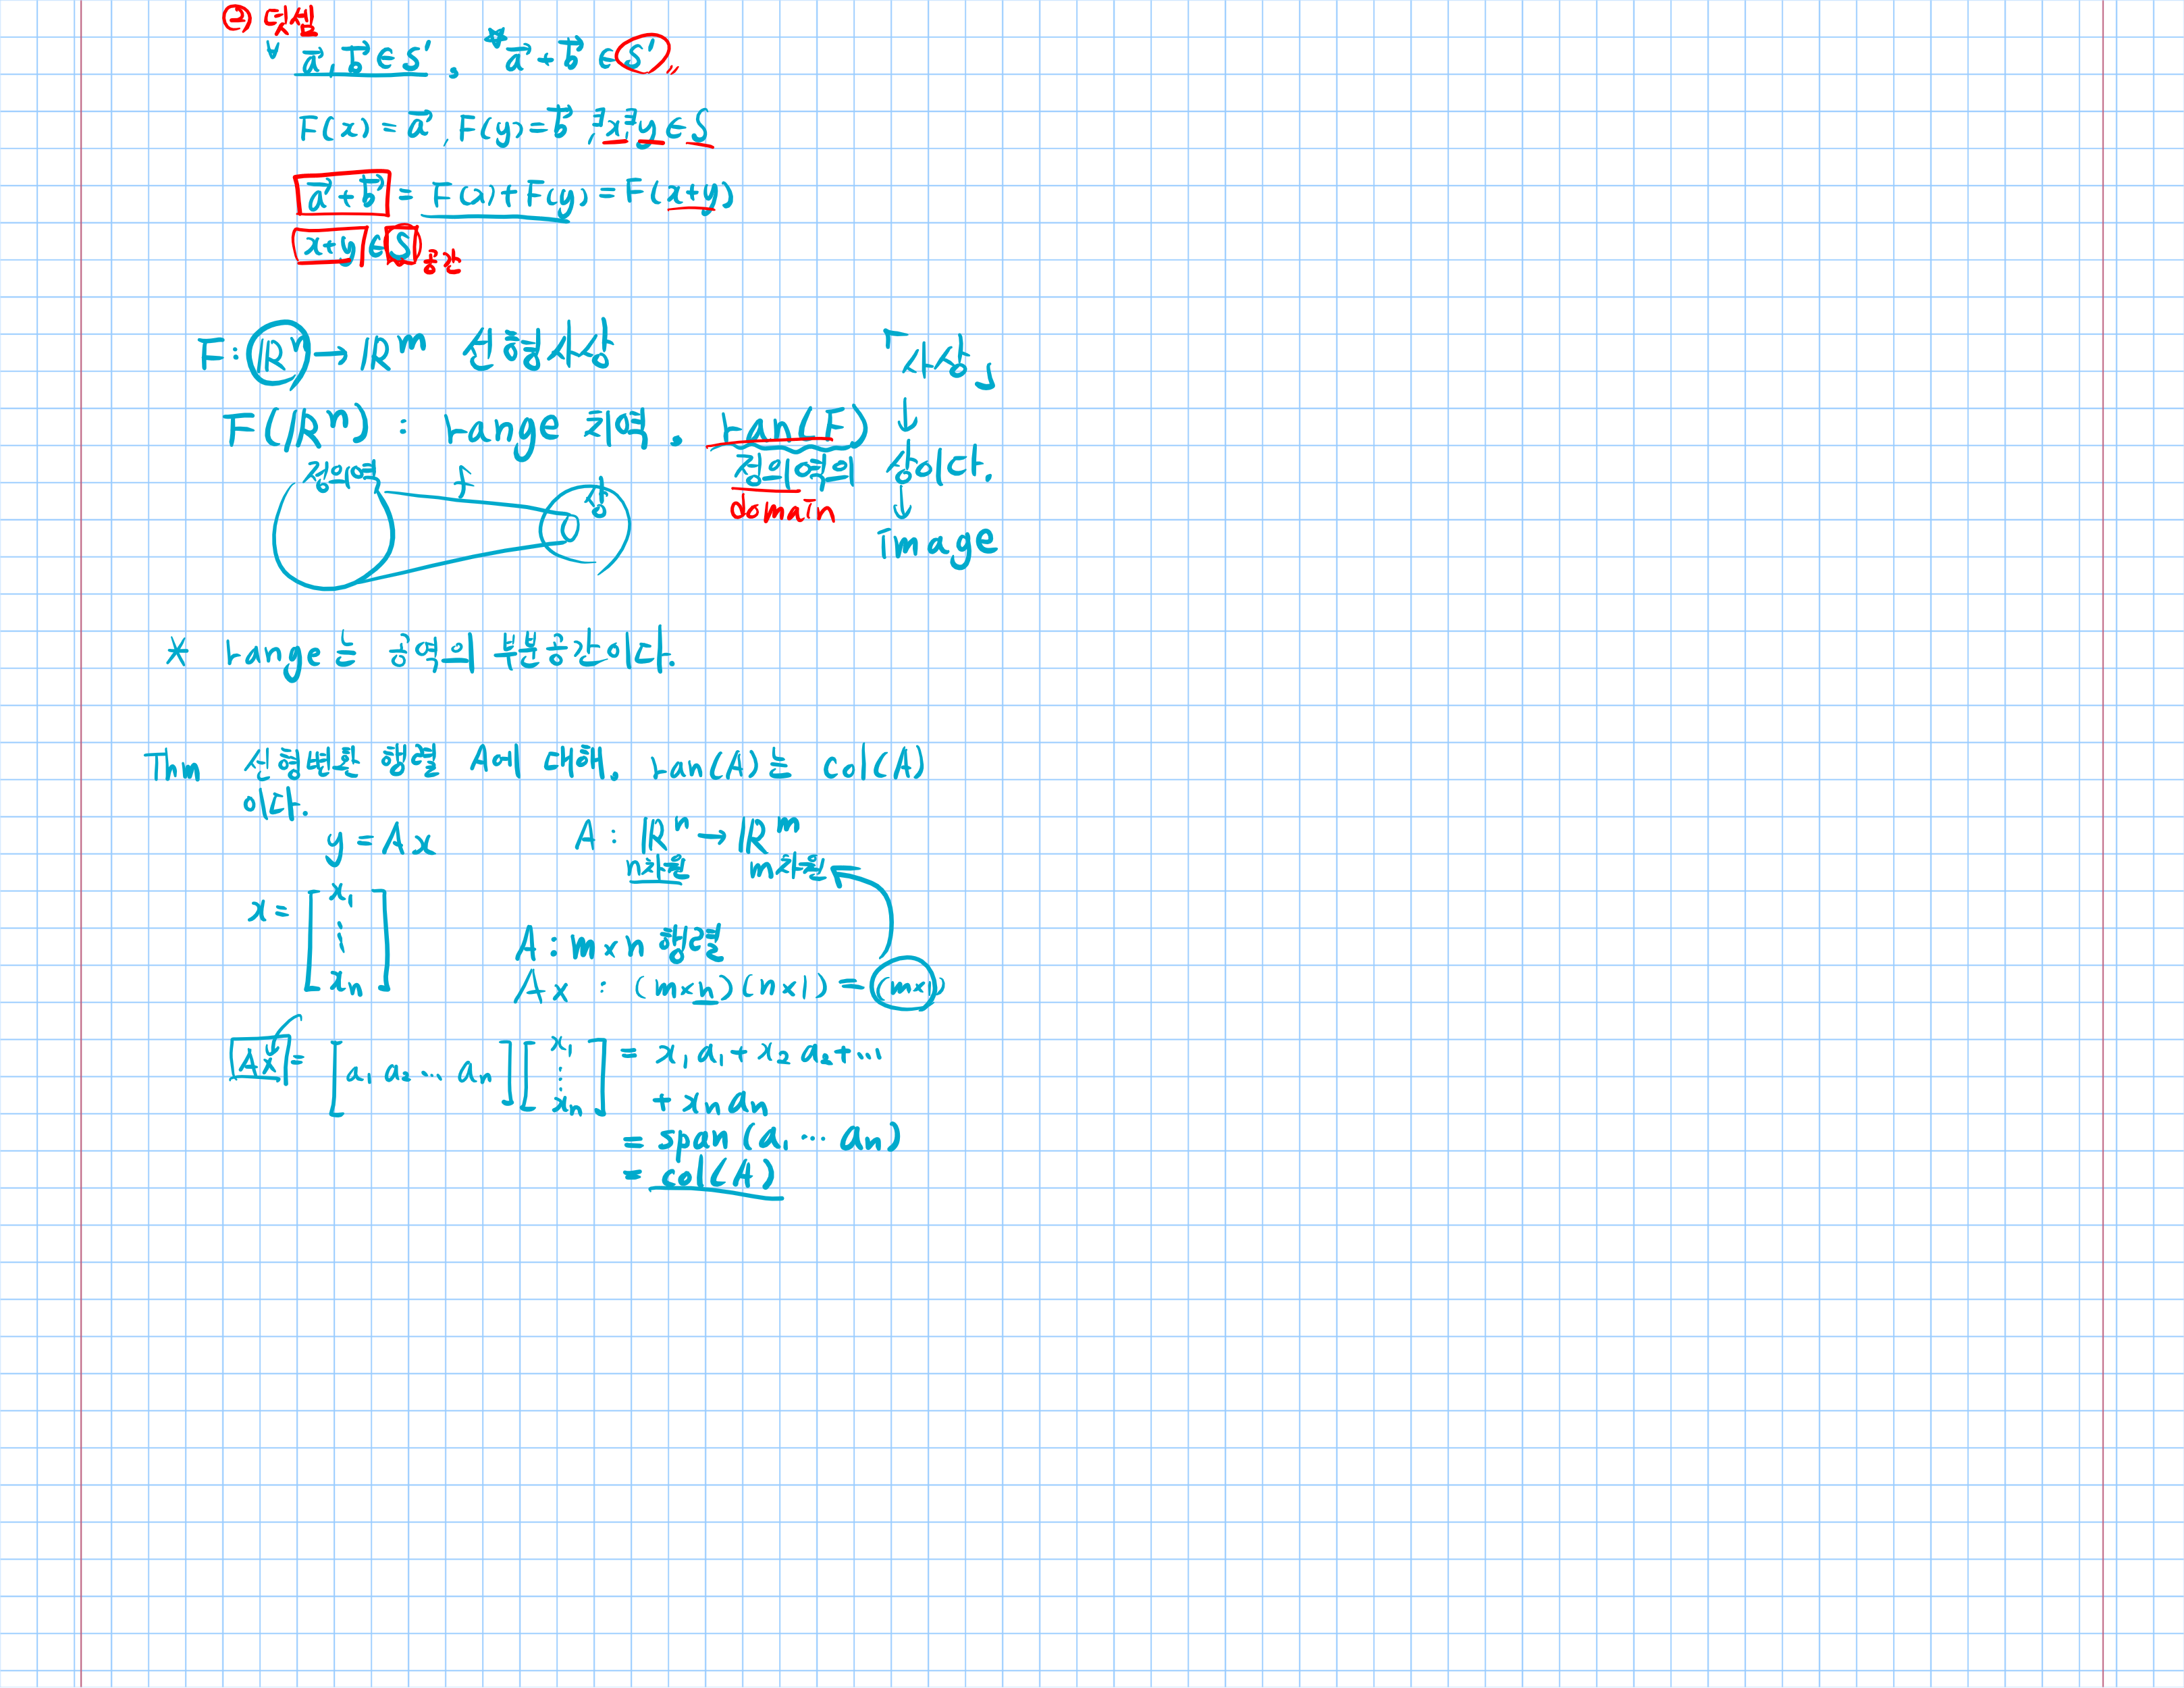 ② 덧셈
∀ a⃗, b⃗ ∈ S', ☆ a⃗ + b⃗ ∈ S'
F(x) = a⃗, F(y) = b⃗, ∃x, ∃y ∈ S
a⃗ + b⃗ = F(x) + F(y) = F(x+y)
x+y ∈ S 공간
F : ℝⁿ → ℝᵐ 선형사상 「사상」
↓
F(ℝⁿ) : range 치역. ran(F)
정의역의 상이다.
domain ↓
image
정의역 f 상
* range는 공역의 부분공간이다.
Thm 선형변환 행렬 A에 대해, ran(A)는 col(A)
이다.
y = Ax A : ℝⁿ → ℝᵐ
n차원 m차원
x = [x₁ ⋮ xₙ]
A : m×n 행렬
Ax : (m×n)(n×1) = (m×1)
Ax = [a₁ a₂ ⋯ aₙ][x₁ ⋮ xₙ] = x₁a₁ + x₂a₂ + ⋯
+ xₙaₙ
= span(a₁ ⋯ aₙ)
= col(A)